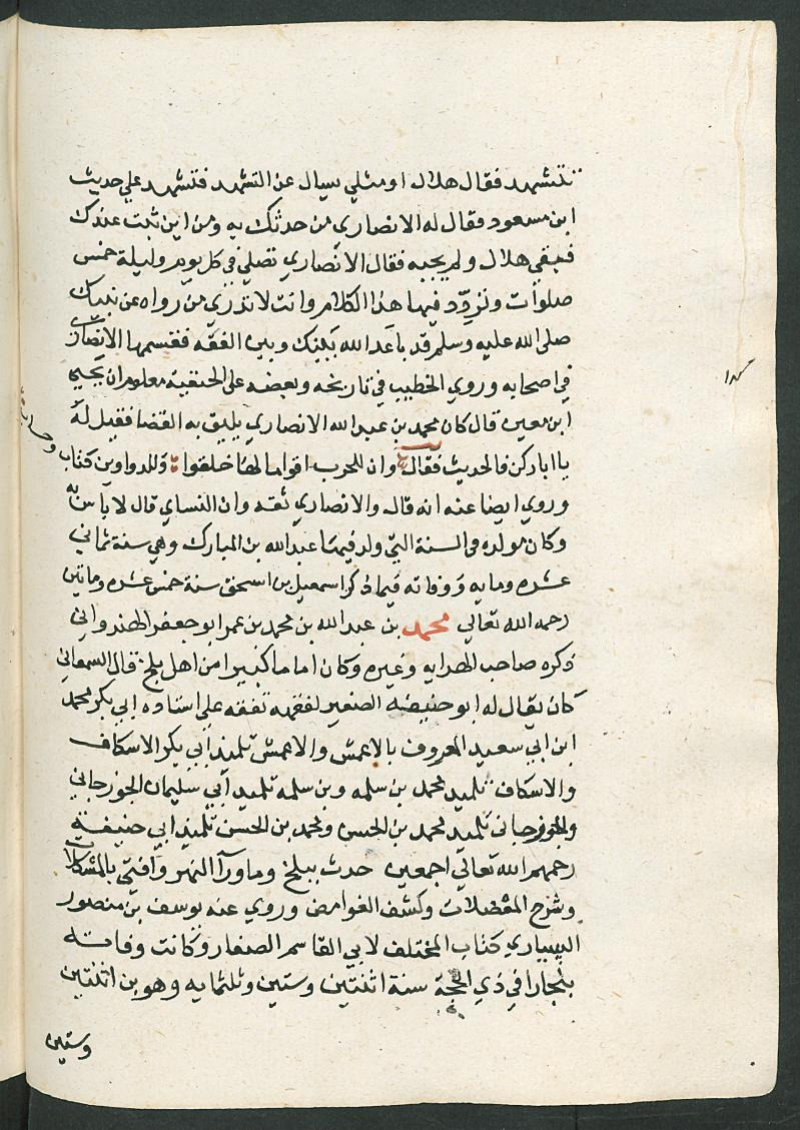 تتشهد فقال هلال او مثلي يسال عن التشهد فتشهد علي حديث
ابن مسعود فقال له الانصاري من حدثك به ومن اين ثبت عندك
فبقي هلال ولم يجبه فقال الانصاري تصلي في كل يوم وليلة خمس
صلوات وتردد فيها هذا الكلام وانت لا تدري من رواه عن نبيك
صلي الله عليه وسلم قد باعد الله بينك وبين الفقه فقسمها الانصاري
في اصحابه وروي الخطيب في تاريخه وبعضه علي الحنفية معلوم ان يحيي
ابن معين قال كان محمد بن عبد الله الانصاري يليق به القضا فقيل له
يا ابا زكن فالحديث فقال وان للحرب اقواما لها خلقوا وللدواوين كتاب
وحساب
وروي ايضا عنه انه قال والانصاري ثقه وان النساي قال لا باس به
وكان مولده في السنة التي ولد فيها عبد الله بن المبارك وهي سنة ثماني
عشره ومايه ووفاته فيما ذكر اسمعيل بن اسحق سنة خمس عشره وماتين
رحمه الله تعالي محمد بن عبد الله بن محمد بن عمر ابو جعفر الهندواني
ذكره صاحب الهدايه وغيره وكان اماما كبيرا من اهل بلخ قال السمعاني
كان يقال له ابو حنيفة الصغير لفقهه تفقه علي استاده ابي بكر محمد
ابن ابي سعيد المعروف بالاعمش والاعمش تلميذ ابي بكر الاسكاف
والاسكاف تلميذ محمد بن سلمه وبن سلمه تلميذ ابي سليمان الجوزجاني
والجوزجاني تلميذ محمد بن الحسن ومحمد بن الحسن تلميذ ابي حنيفة
رحمهم الله تعالي اجمعين حدث ببلخ وما ورآ النهر وافتي بالمشكلات
وشرح المعضلات وكشف الغوامض وروي عنه يوسف بن منصور
السياري كتاب المختلف لابي القاسم الصفار وكانت وفاته
ببخارا في ذي الحجة سنة اثنتين وستين وثلثمايه وهو بن اثنتين
وستين